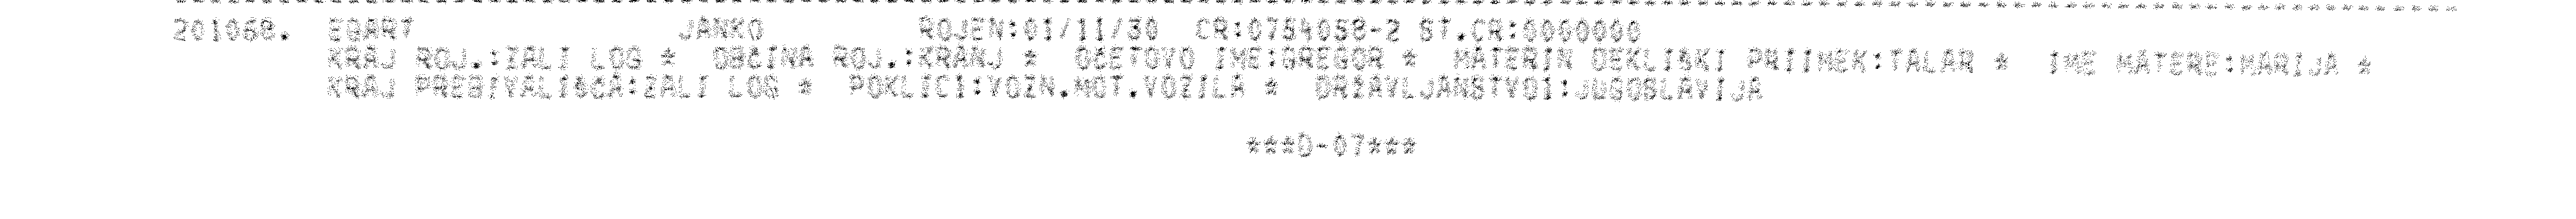 201068. EGART JANKO ROJEN:01/11/30 CR:0754058-2 ST.CR:0000000
KRAJ ROJ.:ZALI LOG * OBČINA ROJ.:KRANJ * OČETOVO IME:GREGOR * MATERIN DEKLIŠKI PRIIMEK:TALAR * IME MATERE:MARIJA *
KRAJ PREBIVALIŠČA:ZALI LOG * POKLIC1:VOZN.MOT.VOZILA * DRŽAVLJANSTVO1:JUGOSLAVIJA
***D-07***